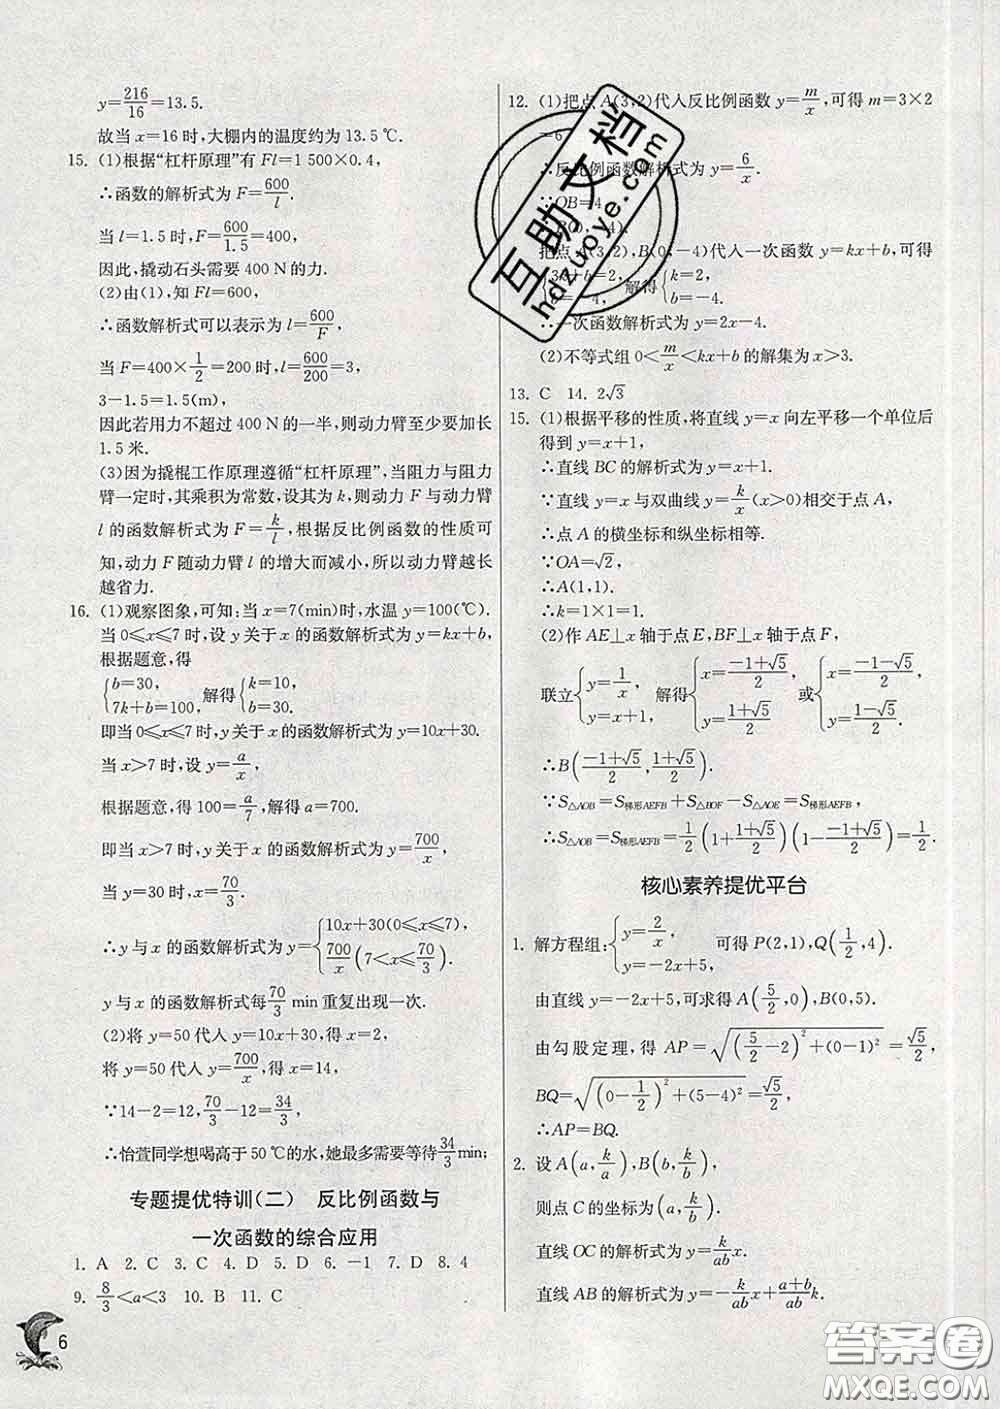 y=216/16=13.5.
故当 x=16时,大棚内的温度约为 13.5 ℃.
15. (1)根据“杠杆原理”有 Fl=1 500×0.4,
∴函数的解析式为 F=600/l.
当 l=1.5 时,F=600/1.5=400,
因此,撬动石头需要 400 N的力.
(2)由(1),知 Fl=600,
∴函数解析式可以表示为 l=600/F,
当 F=400×1/2=200时,l=600/200=3,
3-1.5=1.5(m),
因此若用力不超过 400 N的一半,则动力臂至少要加长
1.5 米.
(3)因为撬棍工作原理遵循“杠杆原理”,当阻力与阻力
臂一定时,其乘积为常数,设其为 k,则动力 F与动力臂
l 的函数解析式为 F=k/l,根据反比例函数的性质可
知,动力 F随动力臂 l 的增大而减小,所以动力臂越长
越省力.
16. (1)观察图象,可知:当 x=7(min)时,水温 y=100(℃).
当 0≤x≤7 时,设 y 关于 x 的函数解析式为 y=kx+b,
根据题意,得
{b=30, 7k+b=100, 解得{k=10, b=30.
即当 0≤x≤7时,y 关于 x 的函数解析式为 y=10x+30.
当 x>7 时,设 y=a/x,
根据题意,得 100=a/7,解得 a=700.
即当 x>7 时,y 关于 x 的函数解析式为 y=700/x,
当 y=30 时,x=70/3.
∴y 与 x 的函数解析式为 y={10x+30(0≤x≤7), 700/x(7<x≤70/3).
y 与 x 的函数解析式每70/3 min 重复出现一次.
(2)将 y=50 代入 y=10x+30,得 x=2,
将 y=50 代入 y=700/x,得 x=14,
∵14-2=12,70/3-12=34/3,
∴怡萱同学想喝高于 50 ℃的水,她最多需要等待34/3min;
专题提优特训(二) 反比例函数与
一次函数的综合应用
1. A 2. C 3. C 4. D 5. D 6. -1 7. D 8. 4
9. 8/3<a<3 10. B 11. C
6
12. (1)把点 A(3,2)代入反比例函数 y=m/x,可得 m=3×2
=6
∴反比例函数解析式为 y=6/x.
∵OB=4
4).
把点 A(3,2),B(0,-4)代入一次函数 y=kx+b,可得
{3k+b=2, b=-4, 解得{k=2, b=-4.
∴一次函数解析式为 y=2x-4.
(2)不等式组 0<m/x<kx+b 的解集为 x>3.
13. C 14. 2√3
15. (1)根据平移的性质,将直线 y=x 向左平移一个单位后
得到 y=x+1,
∴直线 BC 的解析式为 y=x+1.
∵直线 y=x 与双曲线 y=k/x(x>0)相交于点 A,
∴点 A 的横坐标和纵坐标相等.
∵OA=√2,
∴A(1,1).
∴k=1×1=1.
(2)作 AE⊥x 轴于点 E,BF⊥x 轴于点 F,
联立{y=1/x, y=x+1, 解得{x=(-1+√5)/2, y=(1+√5)/2 或{x=(-1-√5)/2, y=(1-√5)/2.
∴B((-1+√5)/2,(1+√5)/2).
∵S△AOB=S梯形AEFB+S△BOF-S△AOE=S梯形AEFB,
∴S△AOB=S梯形AEFB=1/2(1+(1+√5)/2)(1-(-1+√5)/2)=1/2.
核心素养提优平台
1. 解方程组:{y=2/x, y=-2x+5, 可得 P(2,1),Q(1/2,4).
由直线 y=-2x+5,可求得 A(5/2,0),B(0,5).
由勾股定理,得 AP=√((5/2-2)²+(0-1)²)=√5/2,
BQ=√((0-1/2)²+(5-4)²)=√5/2,
∴AP=BQ.
2. 设 A(a,k/a),B(b,k/b),
则点 C 的坐标为(a,k/b).
直线 OC 的解析式为 y=k/ab x.
直线 AB 的解析式为 y=-k/ab x+(a+b)/ab k.
互助文档
hdzuoye.com
答案圈
MXQE.COM